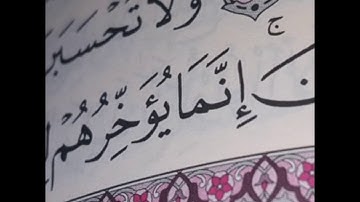 ج وَلَا تَحْسَبَ
إِنَّمَا يُؤَخِّرُهُمْ